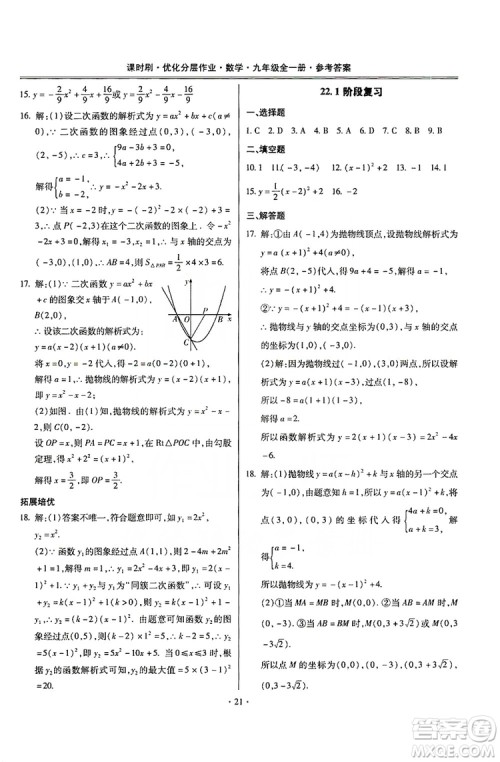 课时刷·优化分层作业·数学·九年级全一册·参考答案
15. y=22/9 x² y=2/9 x² y=4/9 x²
16. 解:(1)设二次函数的解析式为 y=ax²+bx+3(a≠0)
∵二次函数的图象经过点(3,0),
(2,-5),∴{9a-3b+3=0, 4a+2b+3=-5.
解得{a=-1, b=-2.∴y=-x²-2x+3.
(2)∵当x=-2时,y=-(-2)²-2×(-2)+3=3,∴点P(-2,3)在这个二次函数的图象上.令-x²-2x+3=0,解得x₁=-3,x₂=1.∴与x轴的交点为
(-3,0),(1,0).∴AB=4,即S△PAB=1/2×4×3=6.
17. 解:(1)∵二次函数y=ax²+bx
+c的图象交x轴于A(-1,0),
B(2,0),
∴设该二次函数的解析式为
y=a(x-2)(x+1).
将x=0,y=-2代入,得-2=a(0-2)(0+1).
解得a=1.∴抛物线的解析式为y=(x-2)(x+1),
即y=x²-x-2.
(2)如图.由(1)知,抛物线的解析式为y=x²-x
-2,则C(0,-2).
设OP=x,则PA=PC=x+1.在Rt△POC中,由
勾股定理,得x²+2²=(x+1)².
解得x=3/2,即OP=3/2.
拓展培优
18. 解:(1)答案不唯一,符合题意即可,如y₁=2x²,y₂
=x².
(2)∵函数y₁的图象经过点A(1,1),则2-4m+2m²
+1=1,解得m=1.∴y₁=2x²-4x+3=2(x-1)²
+1.∵y₁+y₂与y₁为“同簇二次函数”,∴可设y₁
+y₂=k(x-1)²+1(k>0),则y₂=k(x-1)²+1
-y₁.∴y₂=(k-2)(x-1)².由题意可知函数y₂的图
象经过点(0,5),则(k-2)×1²=5,∴k-2=5.∴y₂
=5(x-1)²,即y₂=5x²-10x+5.当0≤x≤3时,根
据y₂的函数解析式可知,y₂的最大值=5×(3-1)²
=20.
22.1 阶段复习
一、选择题
1. C 2. D 3. C 4. B 5. A 6. D 7. D 8. D 9. C
二、填空题
10. 1 11.(-3,-4) 12. -(x-1)²+2 13. -4 14. -1
15. y=1/2(x-2)²+4 16. -2
三、解答题
17. 解:(1)①由A(-1,4)为抛物线顶点,设抛物线解析式
为y=a(x+1)²+4.
将点B(2,-5)代入,得a=-1.
∴该函数的解析式为y=-(x+1)²+4=-x²-2x
+3.
②令x=0,得y=3,
∴抛物线与y轴的交点坐标为(0,3).
令y=0,-x²-2x+3=0,解得x₁=-3,x₂=1,
∴抛物线与x轴的交点坐标为(-3,0),(1,0).
(2)解:因为抛物线与x轴交于点(-1,0),(3,0),
所以设解析式为y=a(x+1)(x-3).
又因为抛物线过点(1,-8),
所以a(1+1)(1-3)=-8.
解得a=2.
所以函数解析式为y=2(x+1)(x-3),
即y=2x²-4x-6.
18. 解:(1)抛物线y=a(x-h)²+k与x轴的另一个交点
的坐标为(1,0),由题意可知h=-1,将A(-3,0),
C(0,-3)的坐标代入得{4a+k=0, a+k=-3.解得
{a=1, k=-4.
所以抛物线的解析式为y=(x+1)²-4.
(2)设点M的坐标为(0,m).由题意知AC²=3²+3²
=18,AM²=9+m²,CM²=(m+3)²,当AC=AM
时,18=9+m²,所以m=3或m=-3(不合题意,舍
去).所以点M的坐标为(0,3).当AC=CM时,18=
(m+3)²,所以m=-3+3√2或m=-3-3√2.
所以点M的坐标为(0,-3+3√2)或
(0,-3-3√2).
·21·
答案圈
MXQE.COM